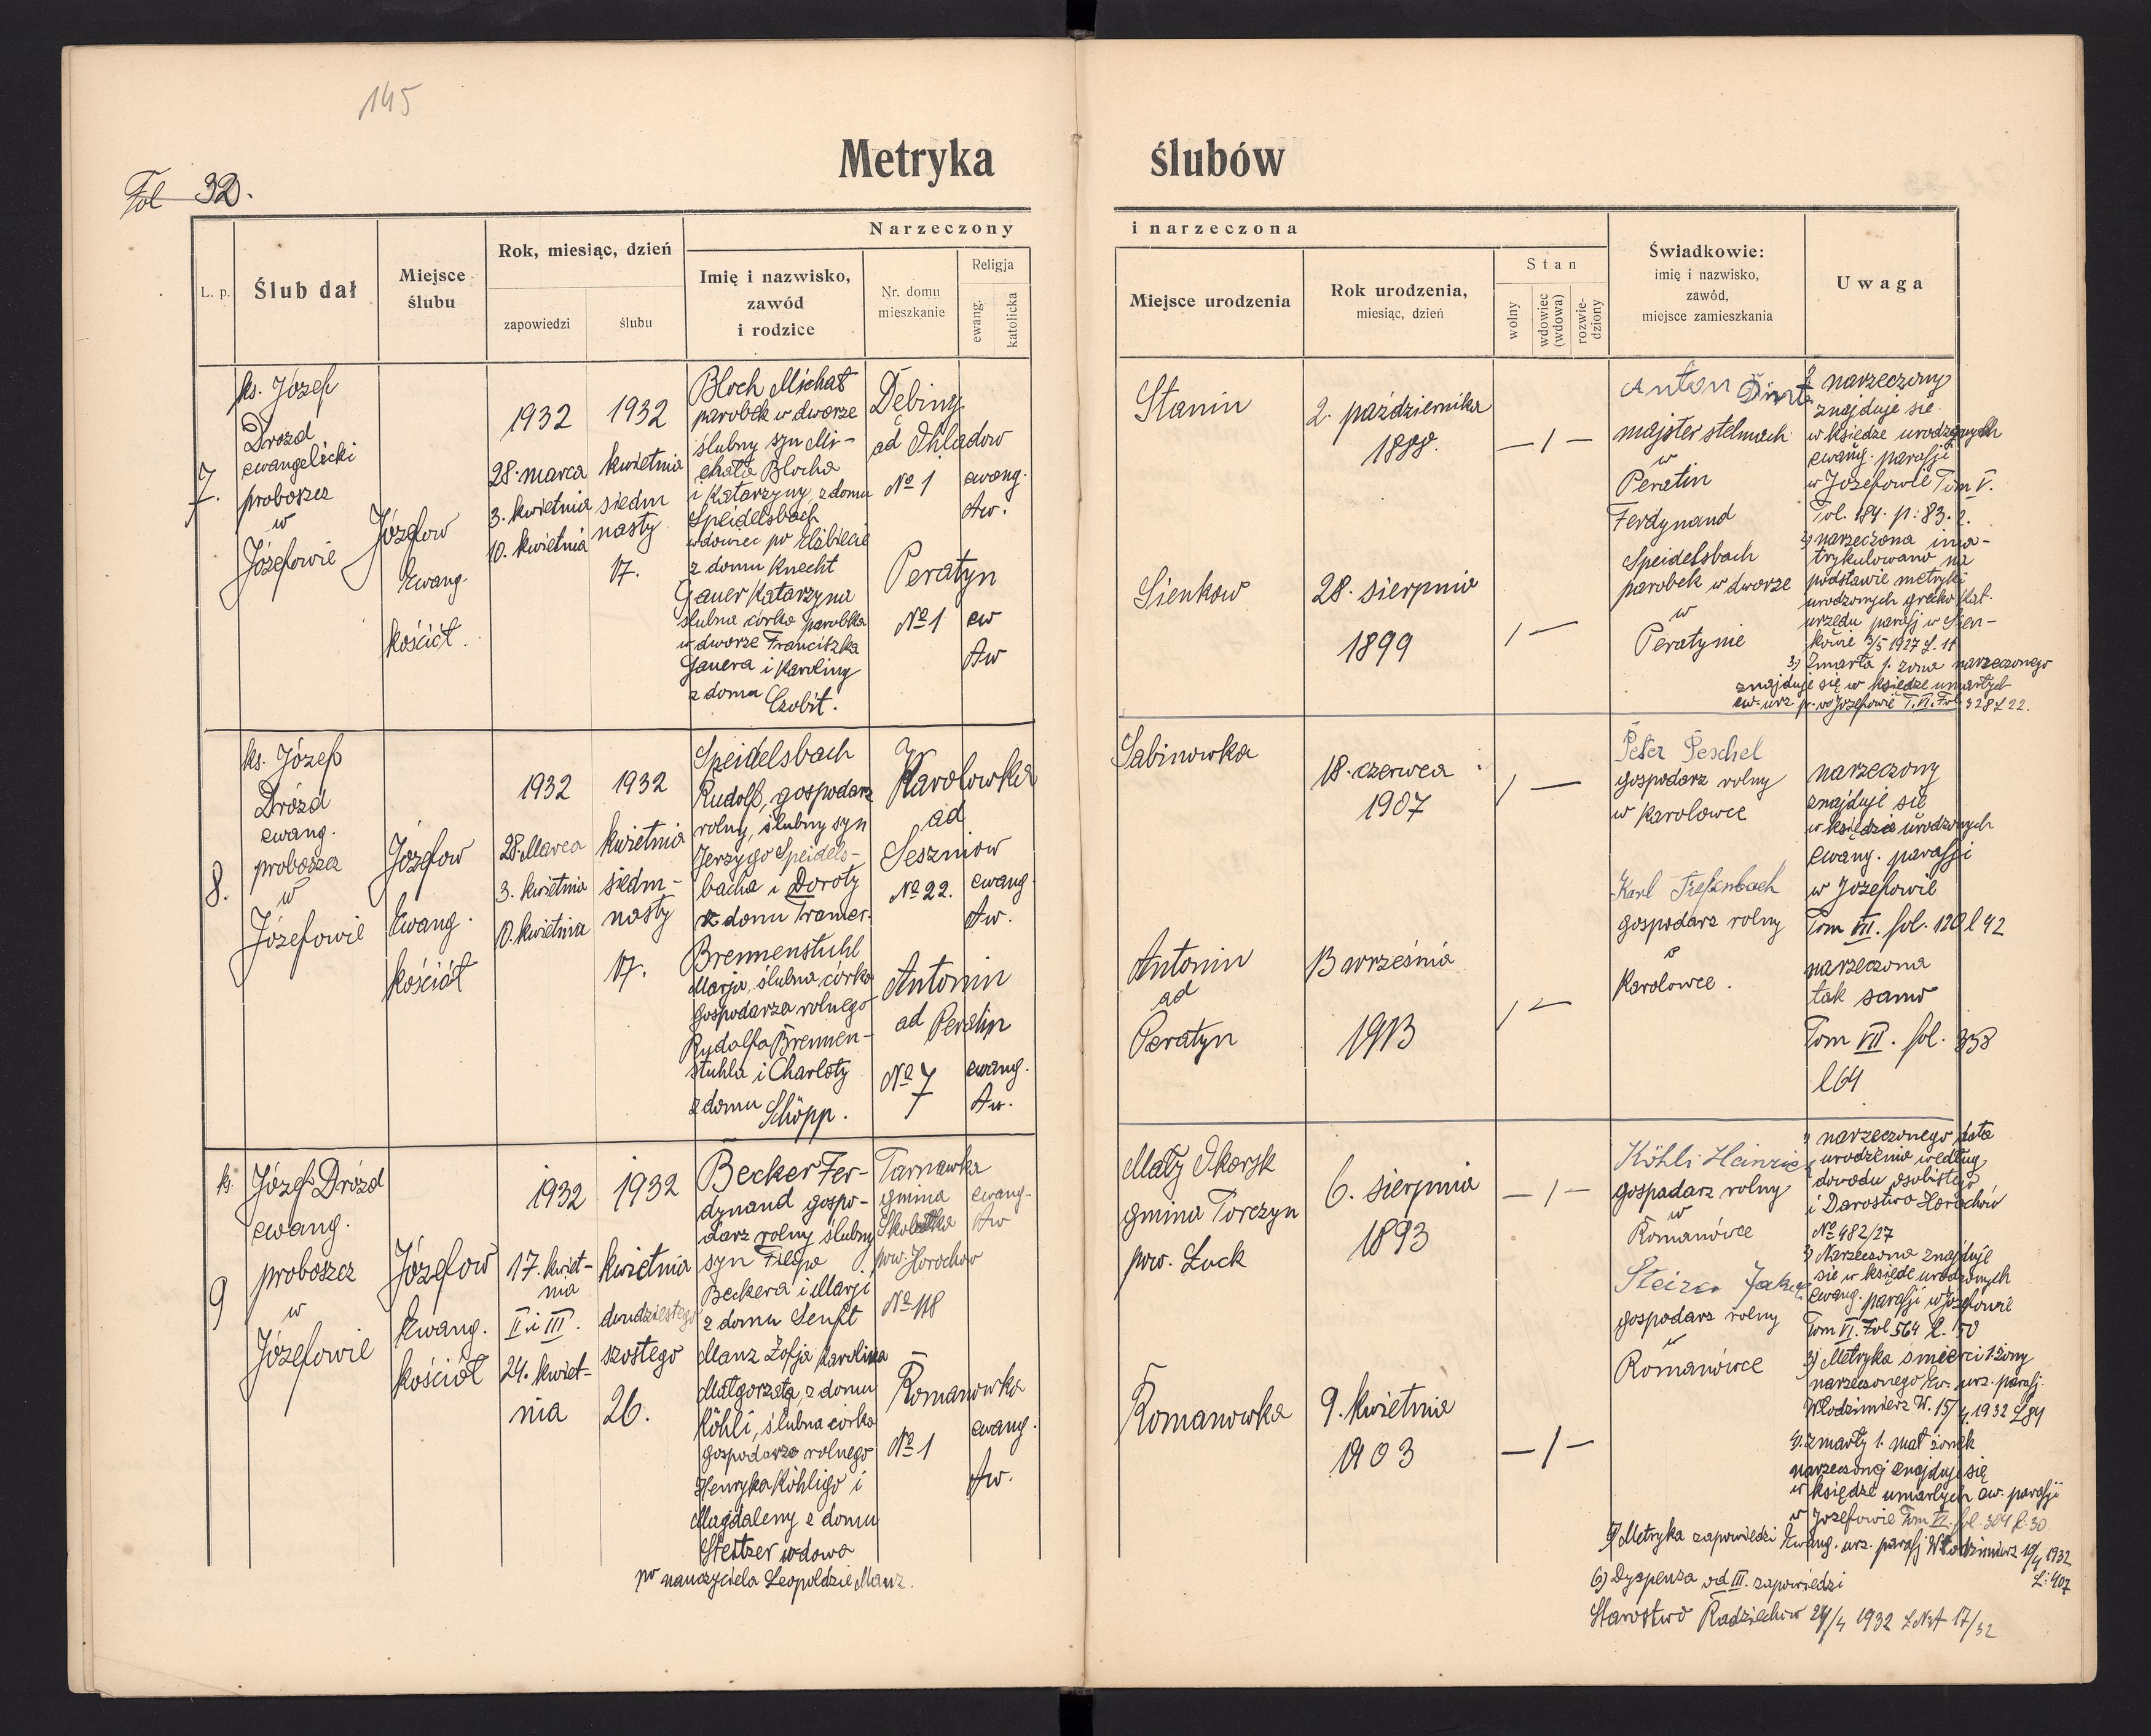 145
Metryka ślubów
Fol 32.
Narzeczony i narzeczona
L. p.
Ślub dał
Miejsce
ślubu
Rok, miesiąc, dzień
zapowiedzi
ślubu
Imię i nazwisko,
zawód
i rodzice
Nr. domu
mieszkanie
Religja
ewang.
katolicka
Miejsce urodzenia
Rok urodzenia,
miesiąc, dzień
Stan
wolny
wdowiec
(wdowa)
rozwie-
dziony
Świadkowie:
imię i nazwisko,
zawód,
miejsce zamieszkania
Uwaga
7.
ks. Józef
Drozd
ewangelicki
proboszcz
w
Józefowie
Józefow
Ewang.
kościół.
1932
28. marca
3. kwietnia
10. kwietnia
1932
kwietnia
siedm
nasty
17.
Bloch Michał
parobek w dworze
ślubny syn Mi-
chała Blocha
i Katarzyny, z domu
Speidelsbach
wdowiec po Elżbiecie
z domu Knecht
Gauer Katarzyna
ślubna córka parobka
w dworze Franciszka
Gauera i Karoliny
z domu
Czobit.
Dębiny
ad Ohladow
No 1
ewang.
Aw.
Peratyn
No 1
ew
Aw
Stanin
2. października
1888.
— 1 —
Sienkow
28. sierpnia
1899
1 —
Anton
majster stelmach
w
Peratin
Ferdynand
Speidelsbach
parobek w dworze
w
Peratynie
narzeczony
znajduje sie
w księdze urodzonych
ewang. parafji
w Józefowie Tom V.
Fol. 184. p: 83.
2) narzeczona ima-
trykulowano na
podstawie metryki
urodzonych grecko Kat.
urzędu parafj w Sien-
kowie 3/5 1927 L. 11
3) Zmarła 1. żona narzeczonego
znajduje się w księdze umarłych
ew. urz p. w Józefowie T. VI. Fol. 328 L 22.
8.
ks. Józef
Drózd
ewang.
proboszcz
w
Józefowie
Józefow
Ewang.
kościół
1932
28. Marca
3. kwietnia
10. kwietnia
1932
kwietnia
siedm-
nasty
17.
Speidelsbach
Rudolf, gospodarz
rolny, ślubny syn
Jerzygo Speidels-
bacha i Doroty
z domu Tramer.
Brennenstuhl
Marja, ślubna córka
gospodarza rolnego
Rudolfa Brennen-
stuhla i Charloty
z domu Schöpp.
Karolowka
ad
Seszniow
No 22.
ewang.
Aw.
Antonin
ad Peratin
No 7
ewang.
Aw.
Sabinowka
18. czerwca
1907
1 —
Antonin
ad
Peratyn
13 września
1913
1 —
Peter Peschel
gospodarz rolny
w Karolowce
Karl Tiefenbach
gospodarz rolny
w
Karolowce.
narzeczony
znajduje się
w księdze urodzonych
Ewang. parafji
w Józefowie
Tom VII. fol. 120 l 42
narzeczona
tak samo
Tom VII. fol. 358
l 64
9
ks.
Józef Drózd
ewang.
proboszcz
w
Józefowie
Józefow
Ewang.
kościół
1932
17. kwiet-
nia
II i III.
24. kwiet-
nia
1932
kwietnia
dwudziestego
szóstego
26.
Becker Fer-
dynand gospo-
darz rolny ślubny
syn Filipa
Beckera i Marji
z domu Senft
Manz Zofja Karolina
Małgorzata, z domu
Köhli, ślubna córka
gospodarza rolnego
Henryka Köhligo i
Magdaleny z domu
Steitzer wdowa
po nauczyciela Leopoldzie Manz.
Tarnawka
gmina
pow. Horochow
No 118
ewang.
Aw
Romanowka
No 1
ewang.
Aw.
Mały Okorsk
gmina Torczyn
pow. Łuck
6. sierpnia
1893
— 1 —
Romanowka
9. kwietnia
1903
— 1 —
Köhli Heinrich
gospodarz rolny
w
Romanówce
gospodarz rolny
w
Romanówce
1) narzeczonego data
urodzenia według
dowodu osobistego
No 482/27
2) Narzeczona znajduje
sie w księdze urodzonych
ewang. parafji w Józefowie
Tom VI. Fol 564 L. 150
3) Metryka śmierci 1. żony
narzeczonego Ew. urz. parafj.
Włodzimierz W. 15/4 1932 L 84
4. zmarły 1. małżonek
narzeczonej znajduje się
w księdze umarłych ew. parafji
w Józefowie Tom VI. fol. 304 l: 30
5) Metryka zapowiedzi Ewang. urz. parafj Włodzimierz 19/4 1932
L: 407
6) Dyspenza od III. zapowiedzi
Starostwo Radziechow 24/4 1932 17/32